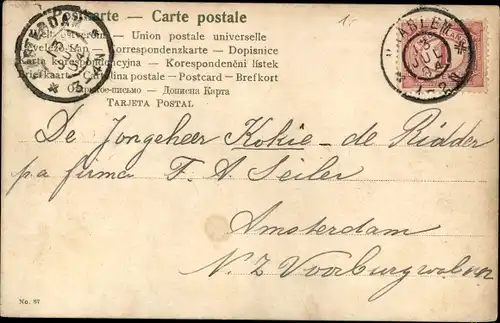 Postkarte — Carte postale
Weltpostverein — Union postale universelle
Levelező-Lap — Korrespondenzkarte — Dopisnice
Karta korespondencyjna — Korespondenční lístek
Briefkaart — Cartolina postale — Postcard — Brefkort
Открытое письмо — Дописна Карта
TARJETA POSTAL
AMSTERDAM
HAARLEM
De Jongeheer Kokie - de Ridder
p/a firma F. A. Seiler
Amsterdam
N. Z. Voorburgwal
No. 87